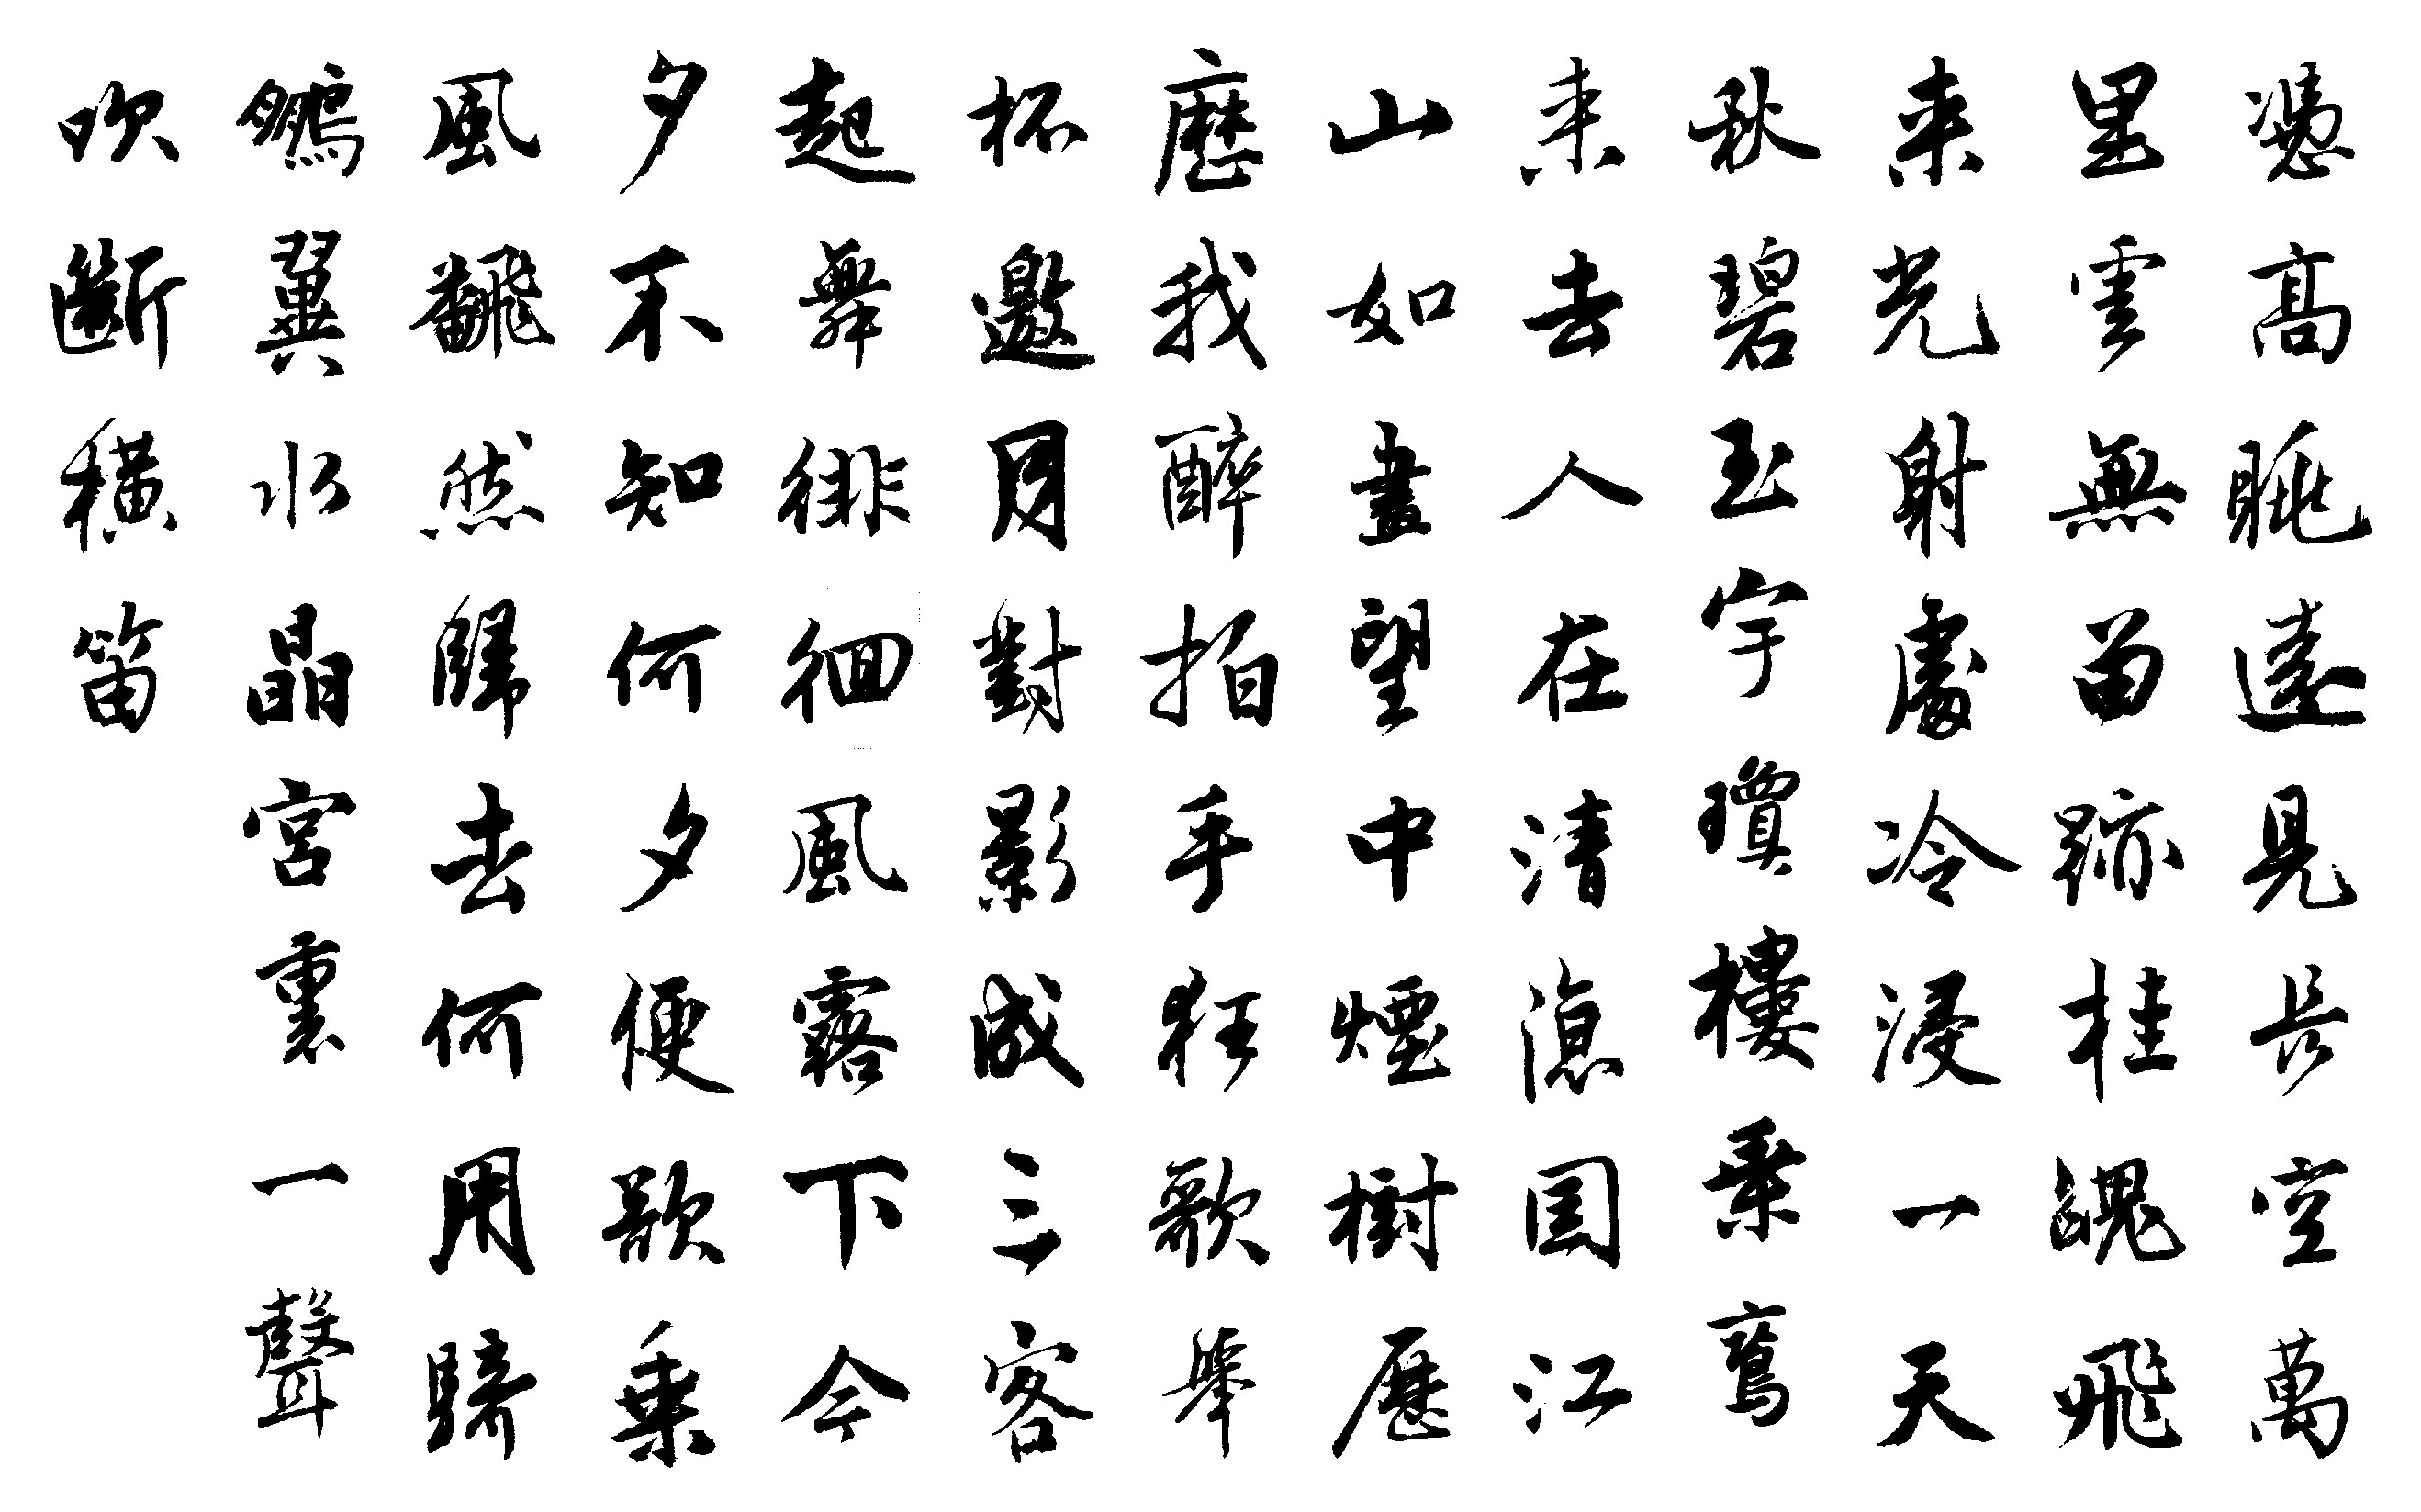 憑高眺遠見長空萬
里雲無留跡桂魄飛
来光射處冷浸一天
秋碧玉宇瓊樓乗鸞
来去人在清涼国江
山如畫望中煙樹歷
歷我醉拍手狂歌舉
杯邀月對影成三客
起舞徘徊風露下今
夕不知何夕便欲乗
風飜然歸去何用騎
鵬翼水晶宮裏一聲
吹斷橫笛